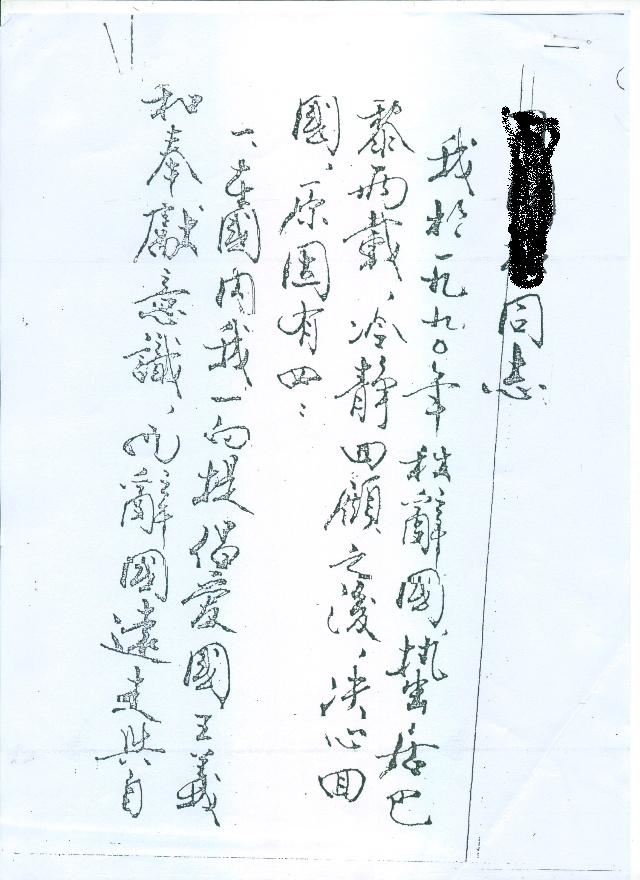 同志
我於一九九〇年秋辭國、蟄居巴
黎兩載、冷靜回顧之後、决心回
國、原因有四：
一、在國內我一向提倡愛國主義
和奉獻意識、而辭國遠走與自